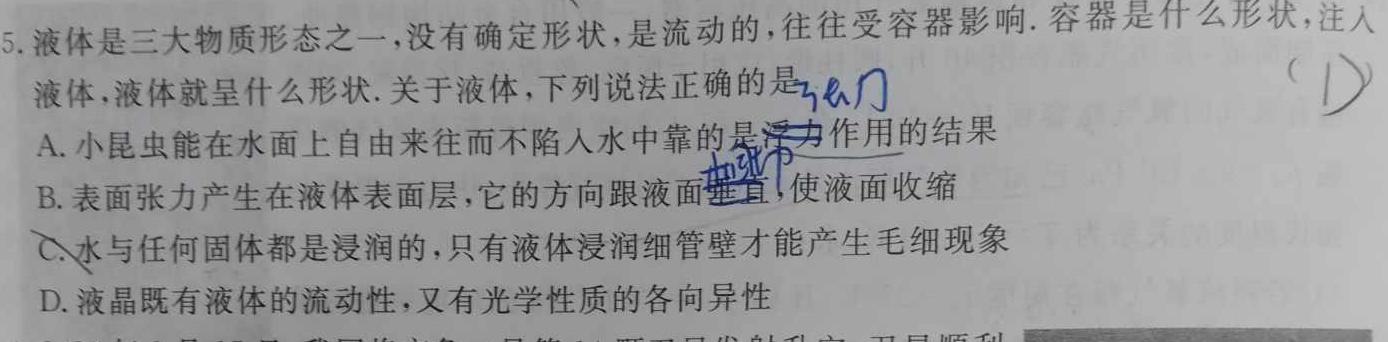 5.液体是三大物质形态之一,没有确定形状,是流动的,往往受容器影响.容器是什么形状,注入
液体,液体就呈什么形状.关于液体,下列说法正确的是
(D)
张力
A.小昆虫能在水面上自由来往而不陷入水中靠的是浮力作用的结果
B.表面张力产生在液体表面层,它的方向跟液面垂直,使液面收缩
C.水与任何固体都是浸润的,只有液体浸润细管壁才能产生毛细现象
D.液晶既有液体的流动性,又有光学性质的各向异性